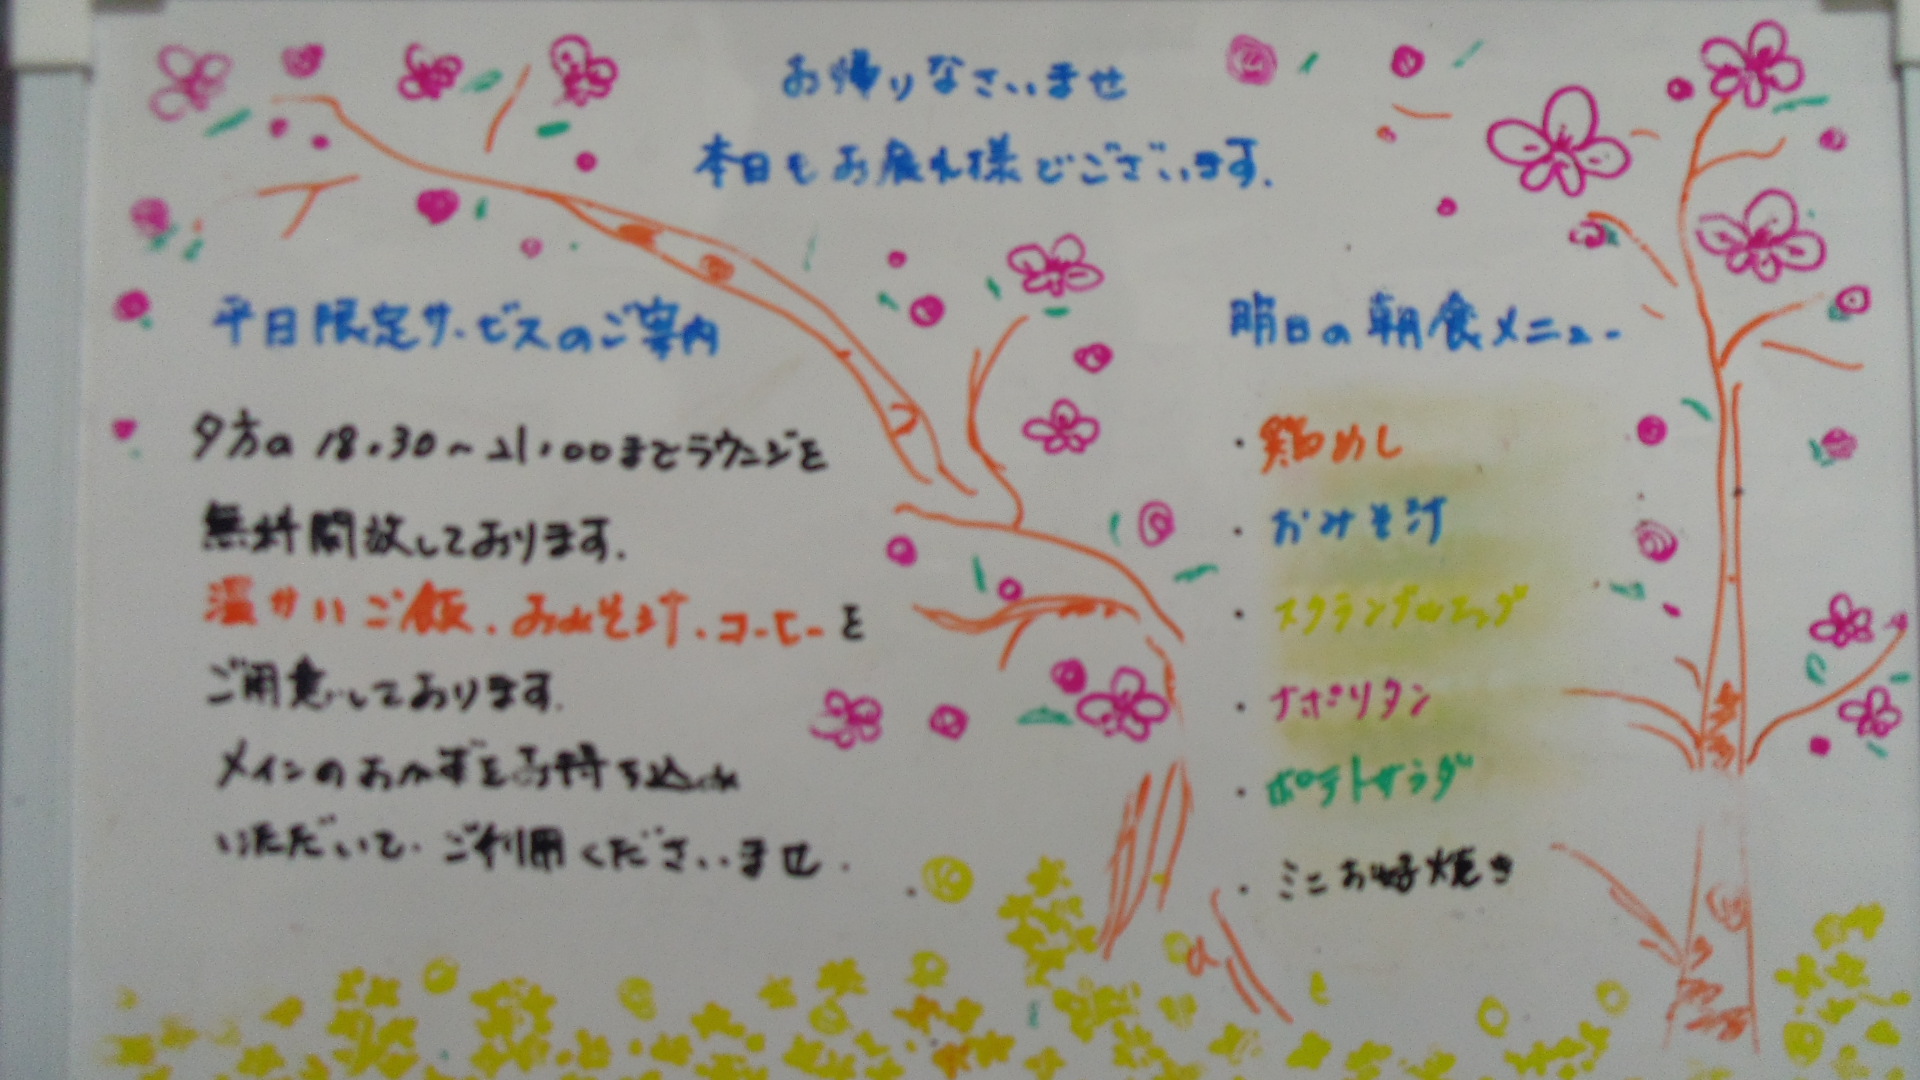 お帰りなさいませ
本日もお疲れ様でございます。
平日限定サービスのご案内
夕方の18.30～21.00までラウンジを
無料開放しております。
温かいご飯、おみそ汁、コーヒーを
ご用意しております。
メインのおかずをお持ち込み
いただいて、ご利用くださいませ.
明日の朝食メニュー
・鶏めし
・おみそ汁
・スクランブルエッグ
・ナポリタン
・ポテトサラダ
・ミニお好焼き